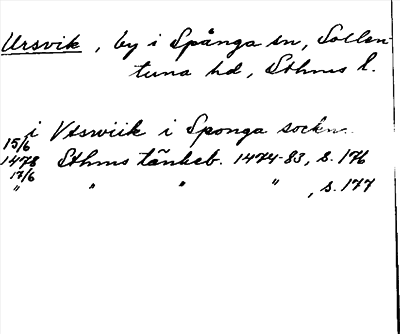 Ursvik, by i Spånga sn, Sollen-
tuna hd, Sthms l.
i Vtswiik i Sponga sockn
15/6
1478 Sthms tänkeb. 1474-83, s. 176
17/6
" " " " , s. 177